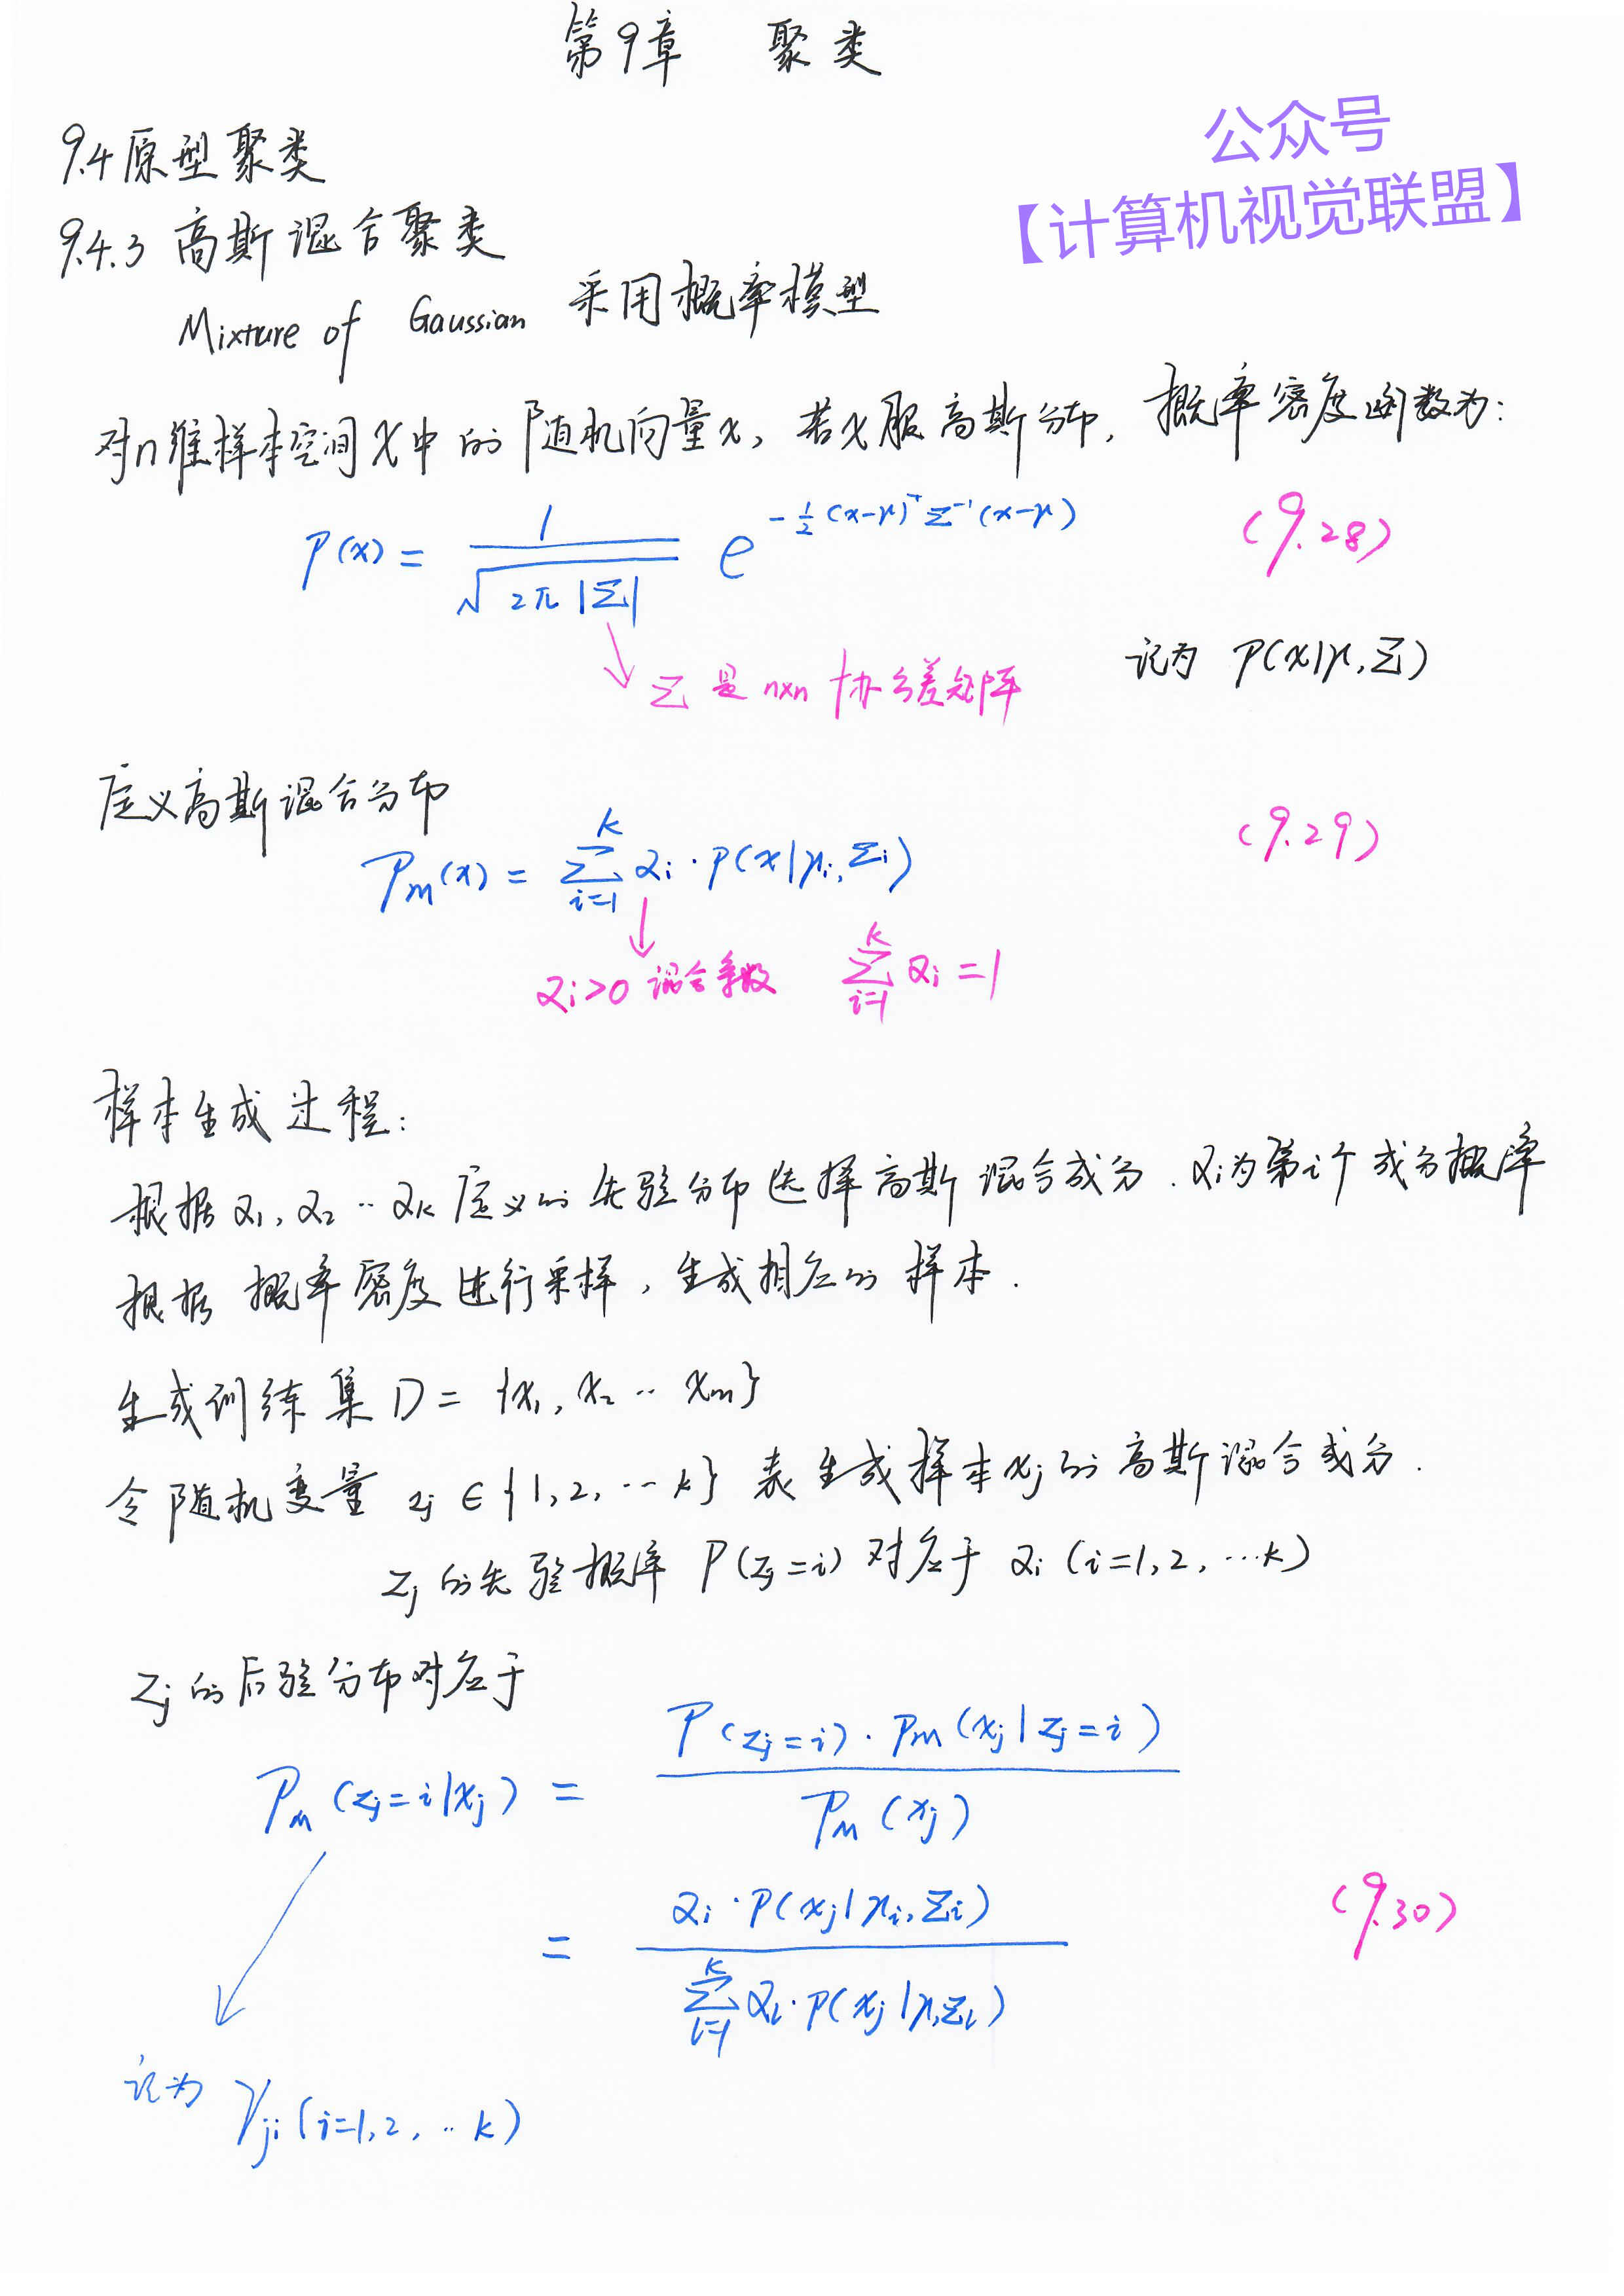 第9章 聚类
公众号
【计算机视觉联盟】
9.4 原型聚类
9.4.3 高斯混合聚类
Mixture of Gaussian 采用概率模型
对n维样本空间X中的随机向量x, 若x服高斯分布, 概率密度函数为:
P(x) = 1 / √(2π|Σ|) e^{-1/2 (x-μ)^T Σ^{-1} (x-μ)} (9.28)
Σ 是 n×n 协方差矩阵
记为 P(x|μ,Σ)
定义高斯混合分布
P_m(x) = Σ_{i=1}^{k} α_i · P(x|μ_i,Σ_i) (9.29)
α_i>0 混合系数 Σ_{i=1}^{k} α_i = 1
样本生成过程:
根据 α₁, α₂ ·· α_k 定义的先验分布选择高斯混合成分. α_i为第i个成分概率
根据概率密度进行采样, 生成相应的样本.
生成训练集 D = {x₁, x₂ ·· x_m}
令随机变量 z_j ∈ {1, 2, ··· k} 表生成样本x_j的高斯混合成分.
z_j 的先验概率 P(z_j=i) 对应于 α_i (i=1,2, ···k)
z_j 的后验分布对应于
P_m(z_j=i|x_j) = P(z_j=i) · P_m(x_j|z_j=i) / P_m(x_j)
= α_i · P(x_j|μ_i,Σ_i) / Σ_{l=1}^{k} α_l · P(x_j|μ,Σ_l) (9.30)
记为 γ_ji (i=1,2, ·· k)